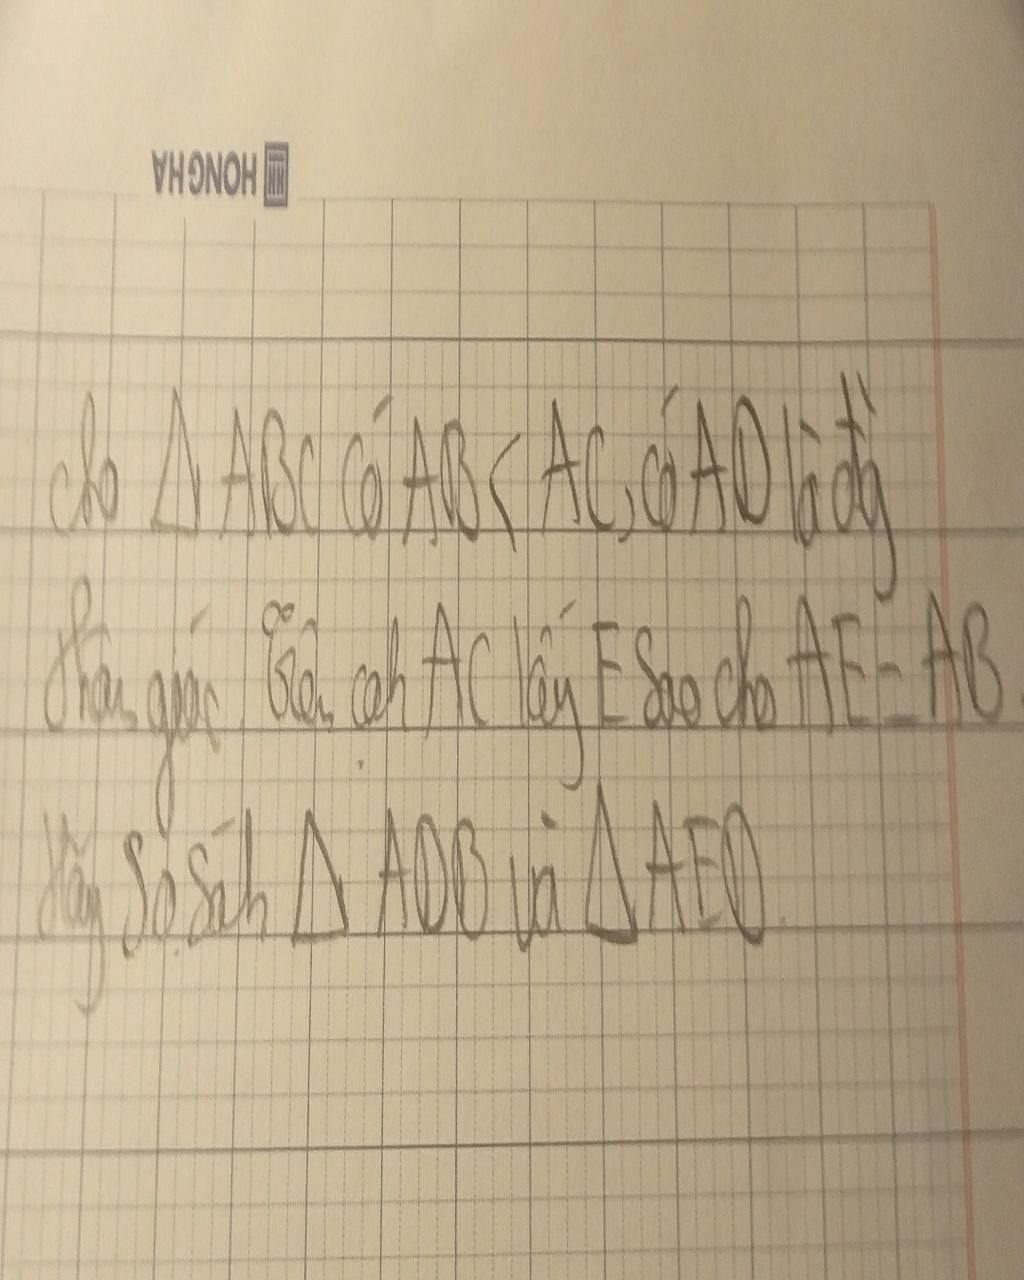 HONG HA
cho Δ ABC có AB < AC, có AD là đg
phân giác. Trên cạnh AC lấy E sao cho AE = AB.
Hãy so sánh Δ ADB và Δ AED.